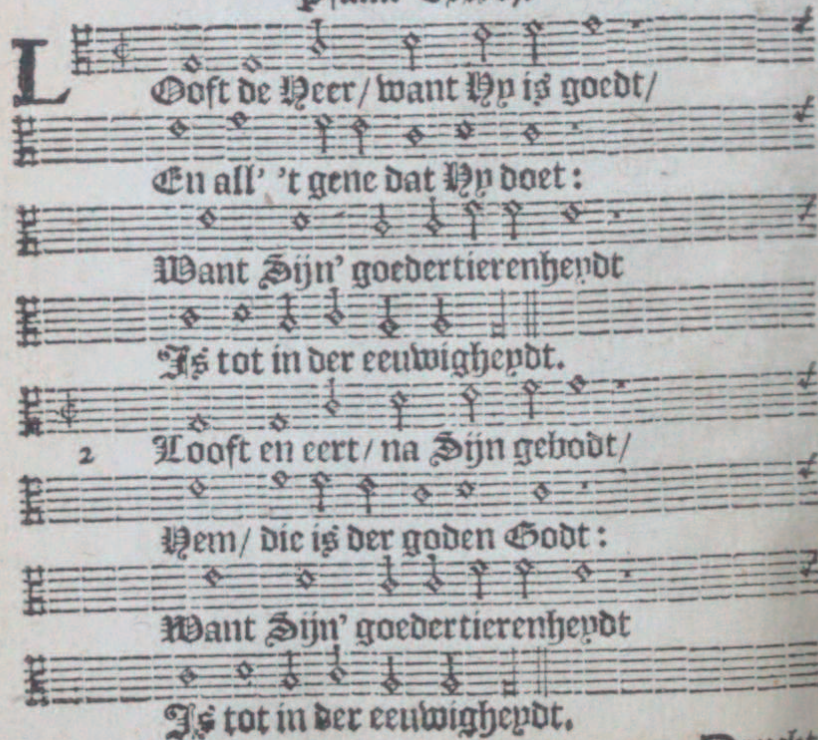 LOoft de Heer/ want Hy is goedt/
En all' 't gene dat Hy doet:
Want Sijn' goedertierenheydt
Is tot in der eeuwigheydt.
2 Looft en eert/ na Sijn gebodt/
Hem/ die is der goden Godt:
Want Sijn' goedertierenheydt
Is tot in der eeuwigheydt.